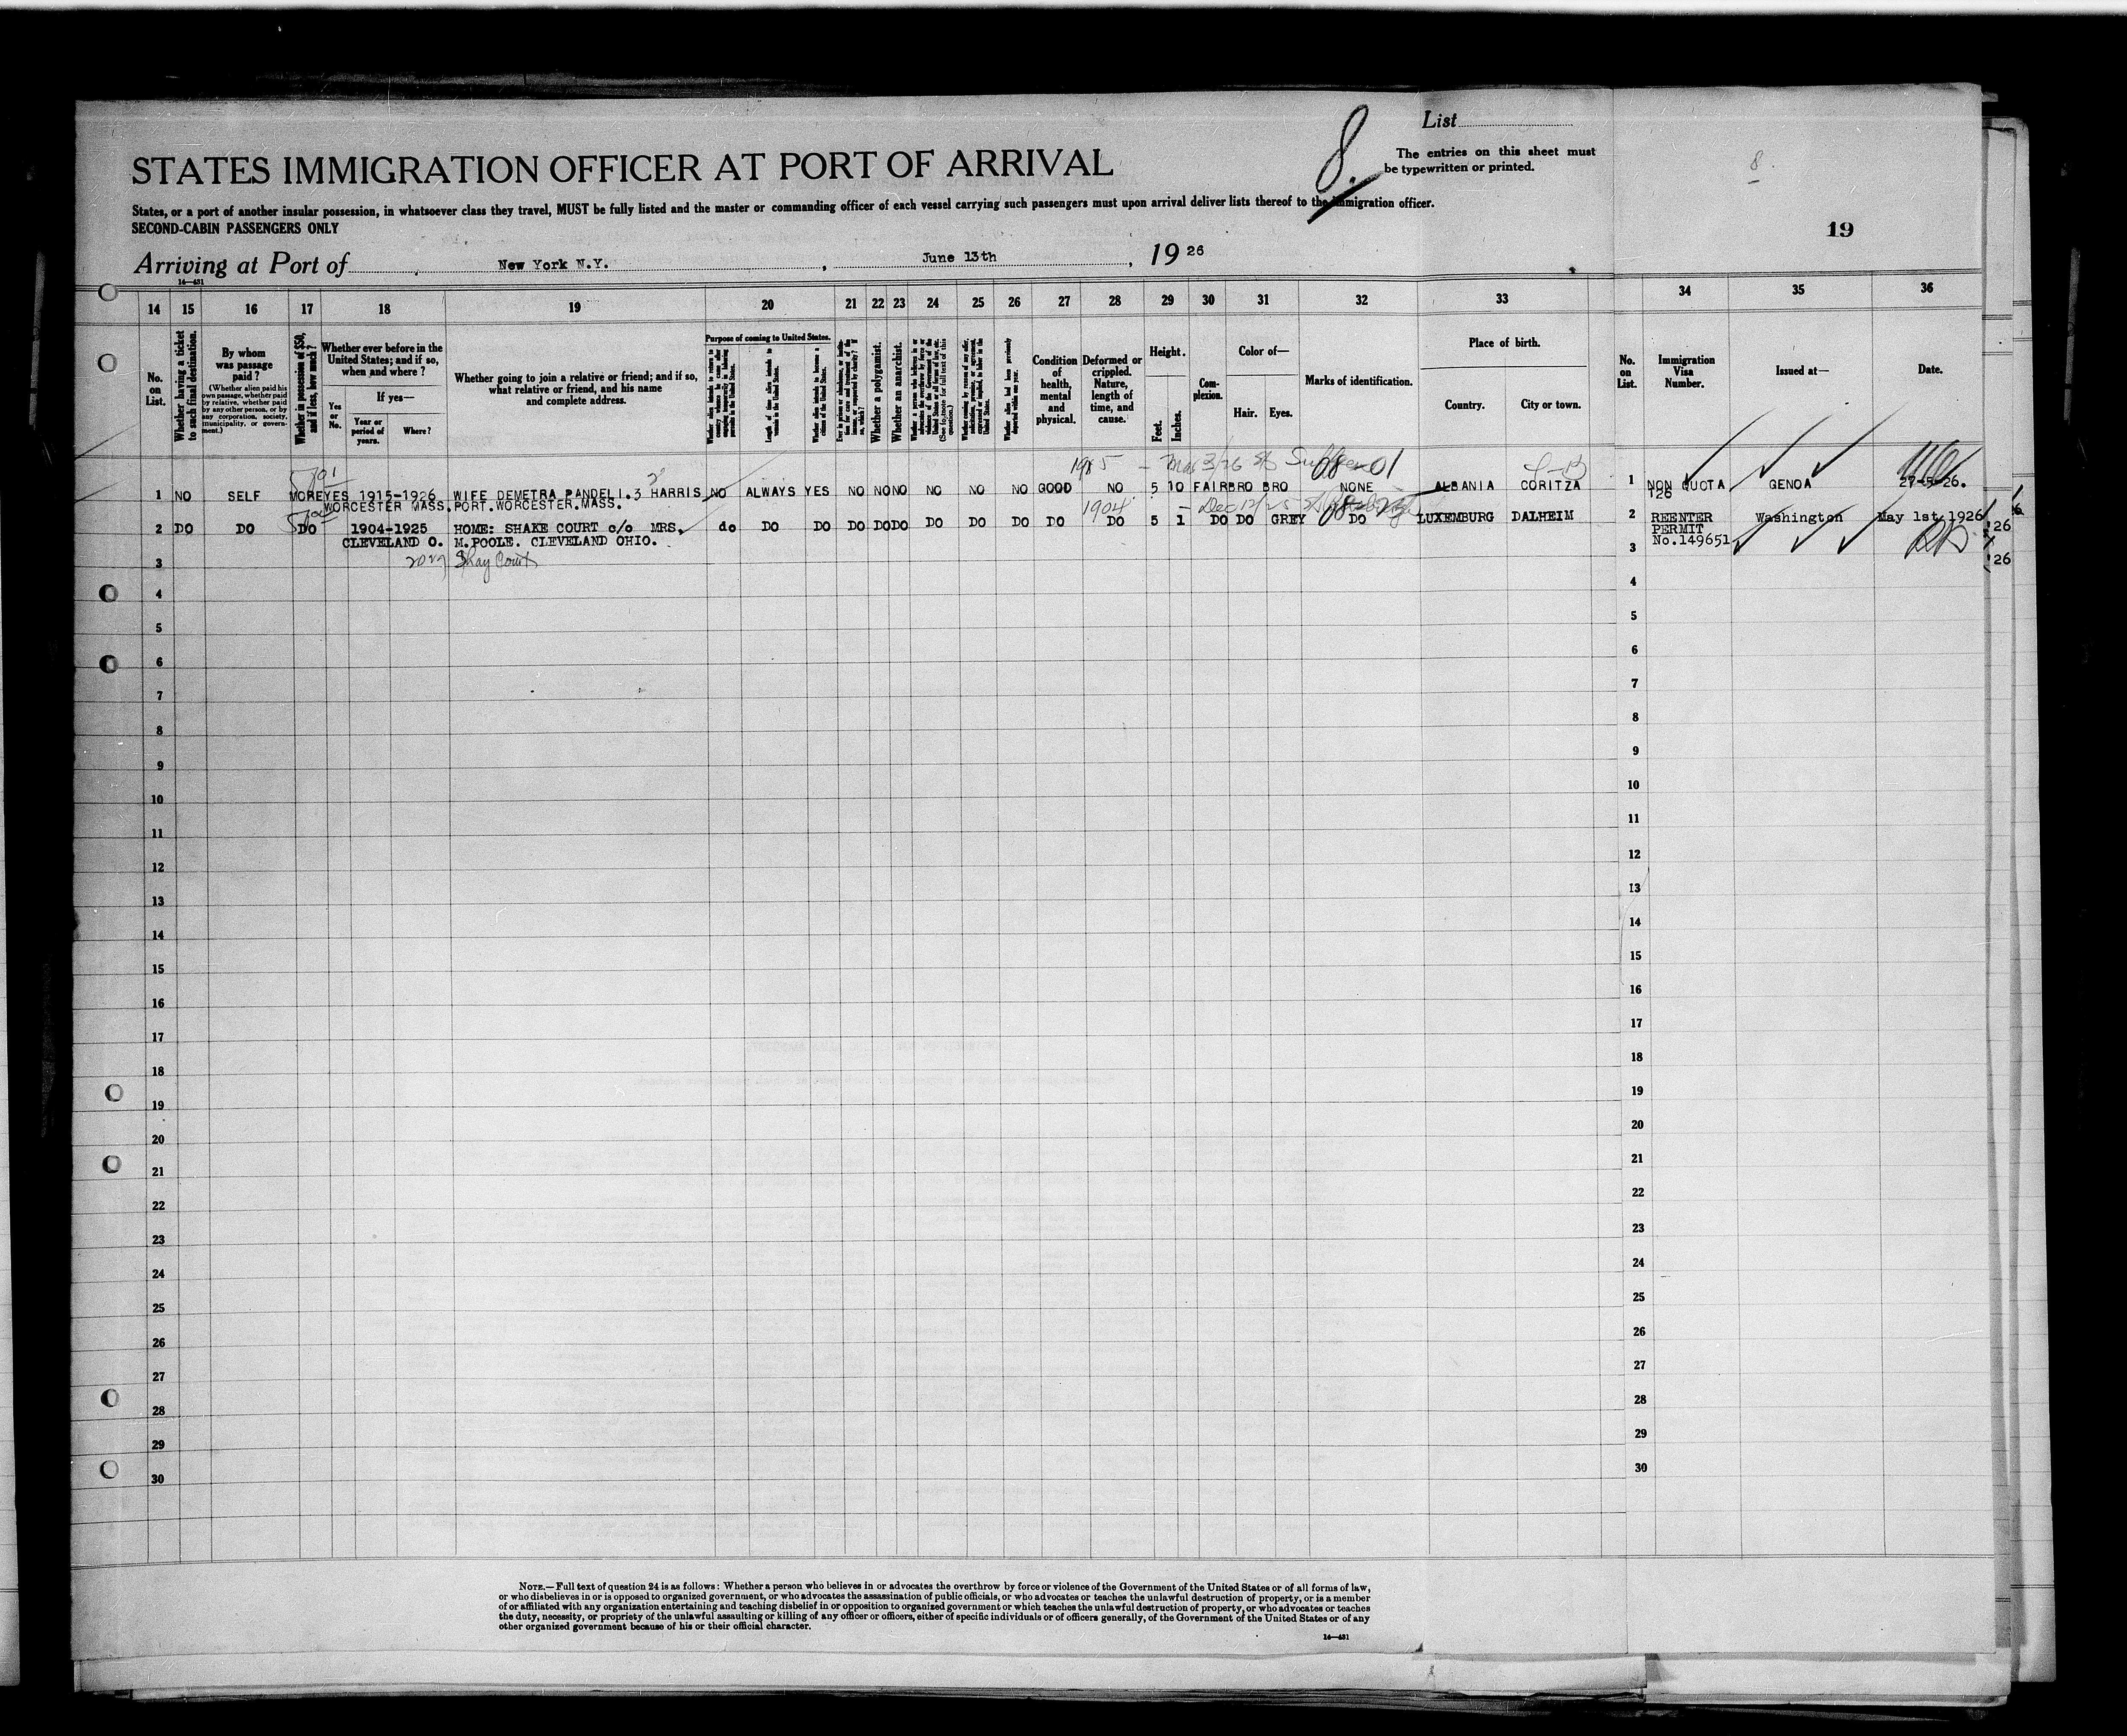 List
8.
The entries on this sheet must
be typewritten or printed.
8.
STATES IMMIGRATION OFFICER AT PORT OF ARRIVAL
States, or a port of another insular possession, in whatsoever class they travel, MUST be fully listed and the master or commanding officer of each vessel carrying such passengers must upon arrival deliver lists thereof to the immigration officer.
SECOND-CABIN PASSENGERS ONLY
19
Arriving at Port of New York N.Y. , June 13th , 19 26
14—431
14 15 16 17 18 19 20 21 22 23 24 25 26 27 28 29 30 31 32 33 34 35 36
No. on List.
Whether having a ticket to such final destination.
By whom was passage paid?
(Whether alien paid his own passage, whether paid by relative, whether paid by any other person, or by any corporation, society, municipality, or government.)
Whether in possession of $50, and if less, how much?
Whether ever before in the United States; and if so, when and where?
Yes or No.
If yes—
Year or period of years.
Where?
Whether going to join a relative or friend; and if so, what relative or friend, and his name and complete address.
Purpose of coming to United States.
Length of time alien intends to remain in the United States.
Whether alien intends to become a citizen of the United States.
Whether a polygamist.
Whether an anarchist.
Condition of health, mental and physical.
Deformed or crippled. Nature, length of time, and cause.
Height.
Feet.
Inches.
Complexion.
Color of—
Hair.
Eyes.
Marks of identification.
Place of birth.
Country.
City or town.
No. on List.
Immigration Visa Number.
Issued at—
Date.
1 NO SELF MORE YES 1915-1926 WIFE DEMETRA PANDELI.3 HARRIS NO ALWAYS YES NO NO NO NO NO NO GOOD NO 5 10 FAIR BRO BRO NONE ALBANIA CORITZA 1 NON QUOTA GENOA 27-5-26.
WORCESTER MASS. PORT.WORCESTER.MASS. 126
1904
2 DO DO DO 1904-1925 HOME: SHAKE COURT c/o MRS. do DO DO DO DO DO DO DO DO DO DO 5 1 DO DO GREY DO LUXEMBURG DALHEIM 2 REENTER Washington May 1st 1926
CLEVELAND O. M.POOLE. CLEVELAND OHIO. PERMIT
No.149651
3 Shay Court 3
4 4
5 5
6 6
7 7
8 8
9 9
10 10
11 11
12 12
13 13
14 14
15 15
16 16
17 17
18 18
19 19
20 20
21 21
22 22
23 23
24 24
25 25
26 26
27 27
28 28
29 29
30 30
NOTE.—Full text of question 24 is as follows: Whether a person who believes in or advocates the overthrow by force or violence of the Government of the United States or of all forms of law,
or who disbelieves in or is opposed to organized government, or who advocates the assassination of public officials, or who advocates or teaches the unlawful destruction of property, or is a member
of or affiliated with any organization entertaining and teaching disbelief in or opposition to organized government or which teaches the unlawful destruction of property, or who advocates or teaches
the duty, necessity, or propriety of the unlawful assaulting or killing of any officer or officers, either of specific individuals or of officers generally, of the Government of the United States or of any
other organized government because of his or their official character.
14—431